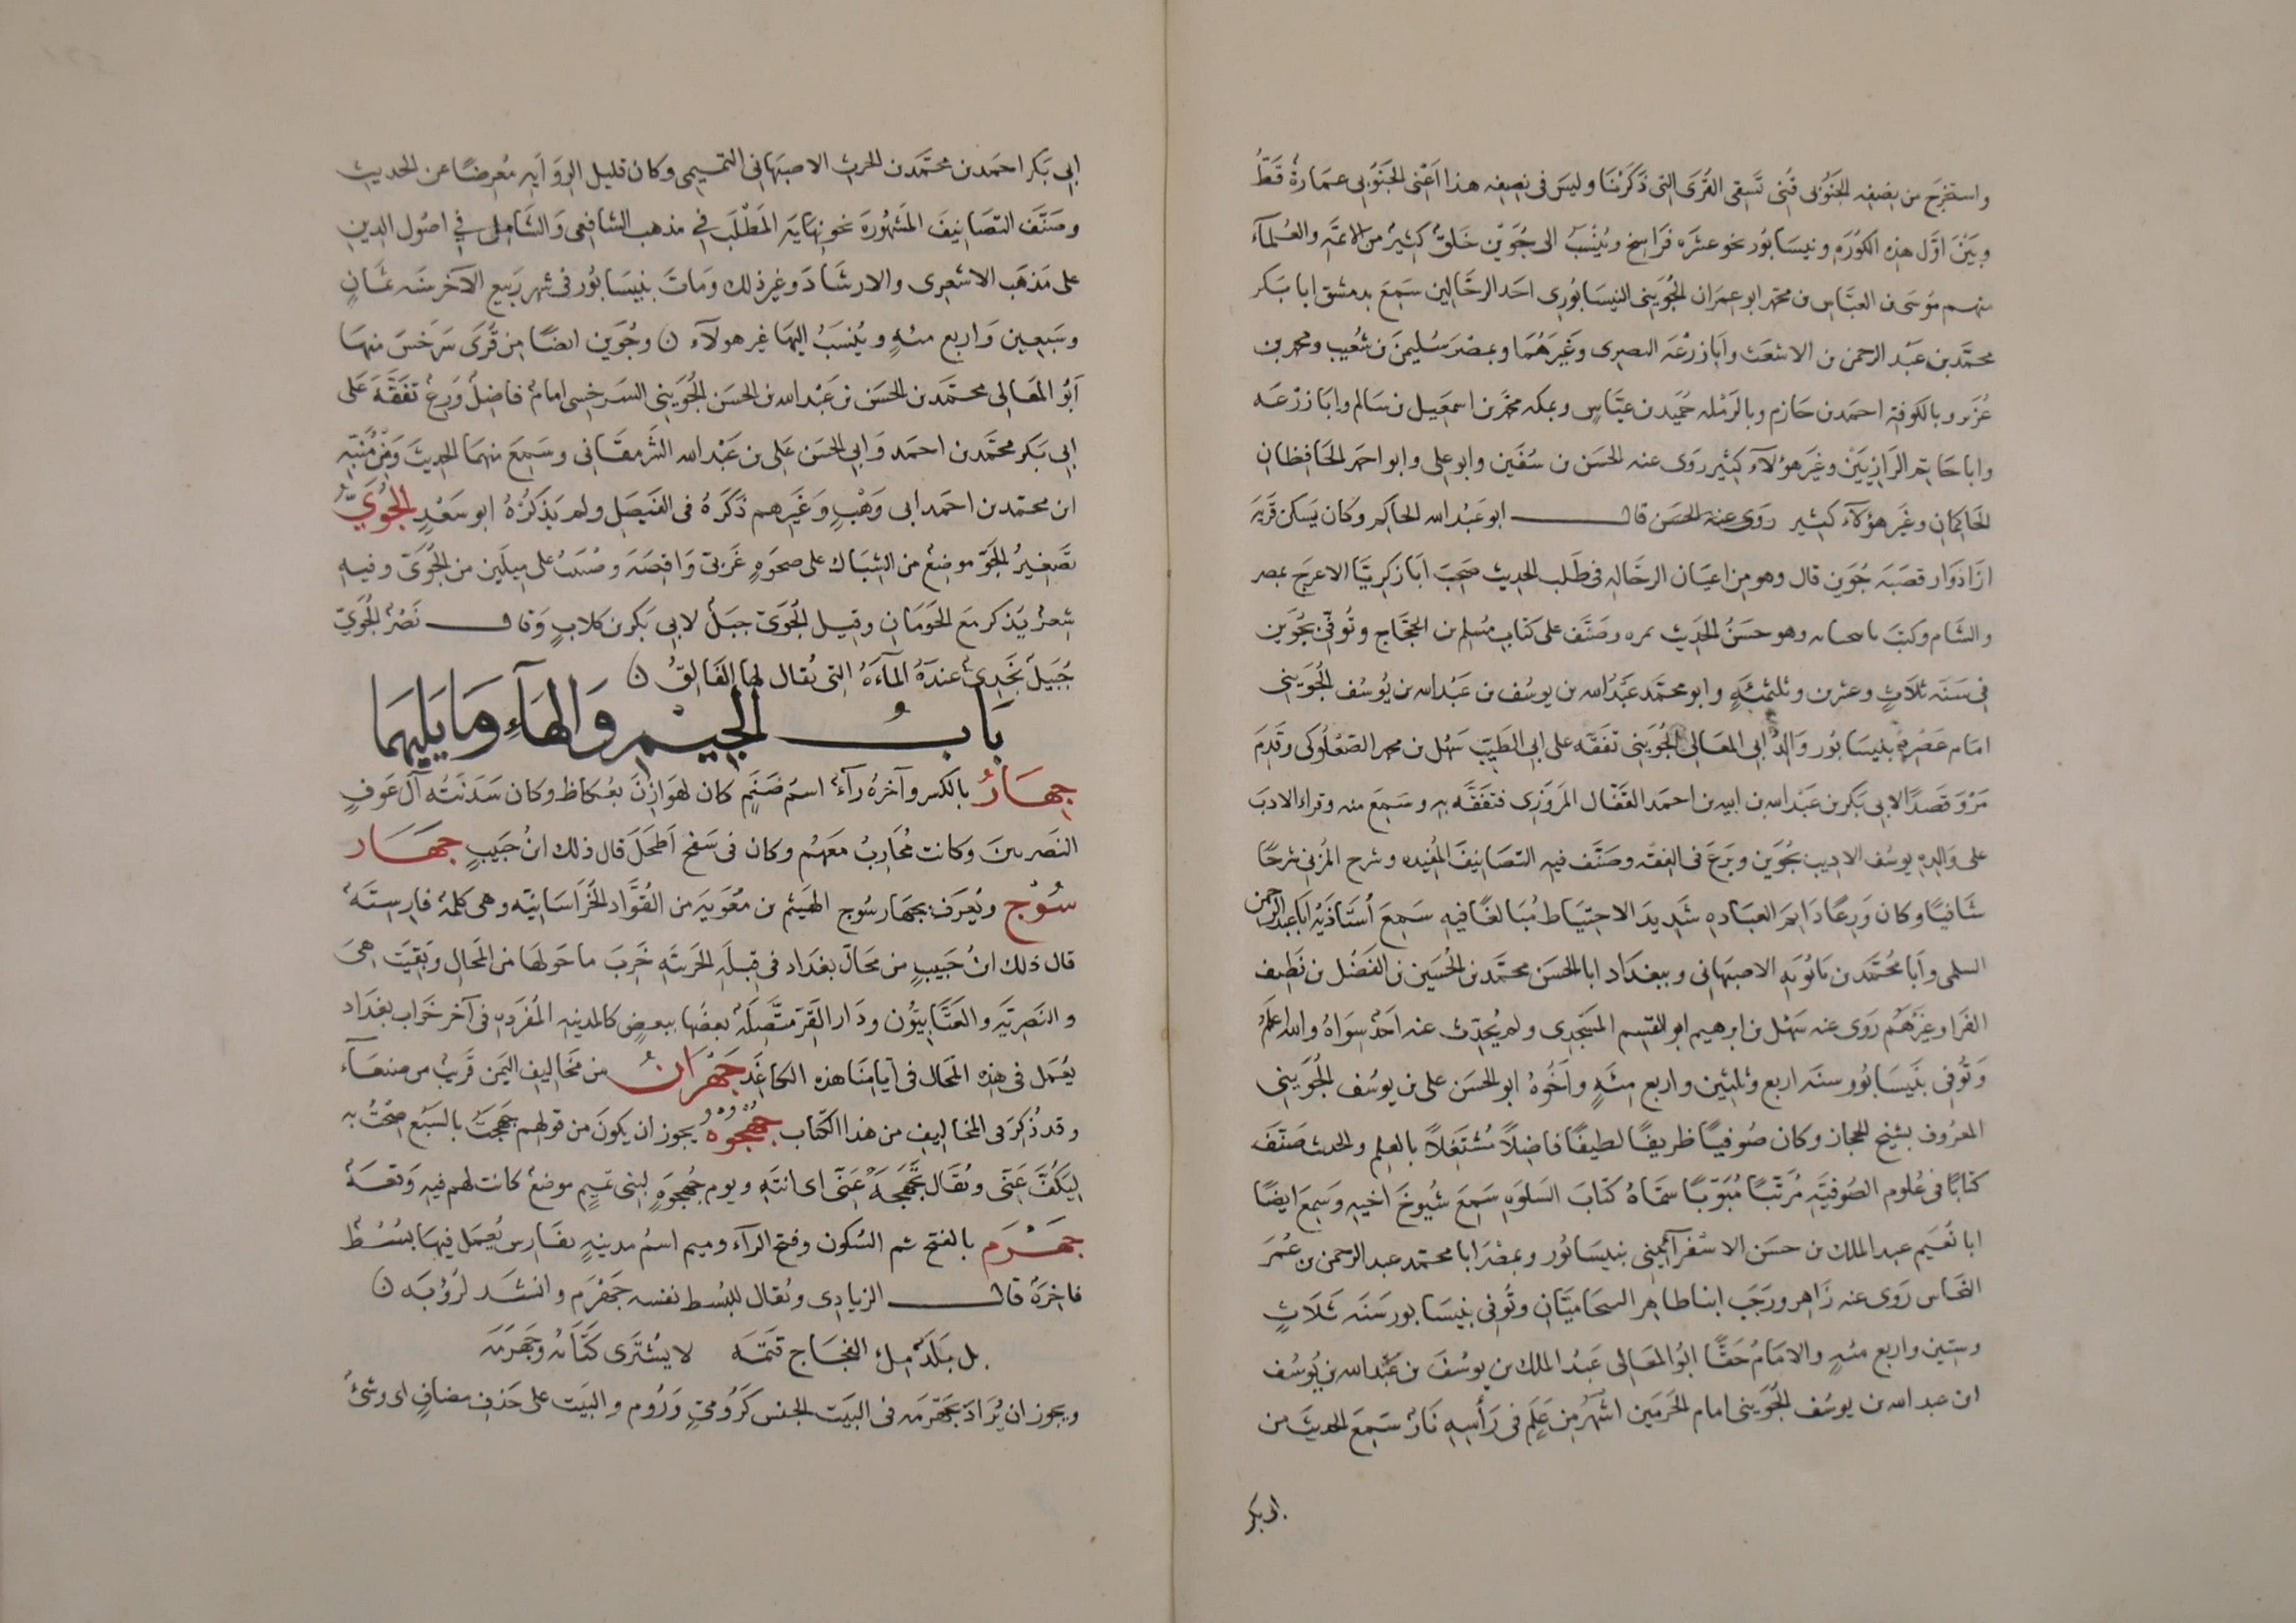 واستخرج من نصفه الجنوبى قُنى تسقى القُرَى التى ذكرنا وليس فى نصفه هذا اعنى الجنوبى عمارة قط
وبين اوّل هذه الكورة ونيسابور نحو عشره فراسخ ويُنسبُ الى جُوَين خلقٌ كثيرٌ من الائمة والعلمآء
منهم موسى بن العبّاس بن محمد ابو عمران الجُوَينى النيسابورى احد الرحّالين سمع بدمشق ابا بكر
محمّد بن عبد الرحمن بن الاشعث وابا زرعه البصرى وغيرهما وبمصر سليمن بن شعيب ومحمد بن
عُزير وبالكوفة احمد بن حازم وبالرمله حُميد بن عيّاس وبمكه محمد بن اسمعيل بن سالم وابا زرعه
وابا حاتم الرازيين وغير هؤلآء كثير روى عنه الحسن بن سفين وابو على وابو احمد الحافظان
الحاكمان وغير هؤلآء كثير روى عنه الحسن قال ابو عبد الله الحاكم وكان يسكن قرية
ازاذوار قصبة جُوَين قال وهو من اعيان الرحّاله فى طلب الحديث صحب ابا زكريّا الاعرج بمصر
والشام وكتب وهو حسنُ الحديث بمره وصنّف على كتاب مسلم بن الحجّاج وتُوفّى بجُوَين
فى سنه ثلاث وعشرين وثلثمئةٍ وابو محمّد عبد الله بن يوسُف بن عبد الله بن يوسُف الجُوَينى
امام عصره بنيسابور والد ابى المعالى الجُوَينى تفقّه على ابى الطيّب سهل بن محمد الصعلوكى وقدم
مَرْو قصدًا لابى بكر بن عبد الله بن ابيه بن احمد القفّال المروزى فتفقّه به وسمع منه وقراء الادب
على والده يوسُف الاديب بجُوَين وبرع فى الفقه وصنّف فيه التصانيف المُفيده وشرح المُزنى شرحًا
شافيًا وكان وَرِعًا دايم العباده شديد الاحتياط مُبالغًا فيه سمع اُستاذيه ابا عبد الرحمن
السلمى وابا محمّد بن بابويه الاصبهانى وببغداد ابا الحسن محمّد بن الحُسين بن الفضل بن نظيف
الفرا وغيرهم روى عنه سهل بن ابرهيم ابو القسم المسجدى ولم يُحدّث عنه احدٌ سواهُ والله اعلم
وتُوفى بنيسابور سنه اربع وثلثين واربع مئةٍ واخوه ابو الحسن على بن يوسُف الجُوَينى
المعروف بشيخ الحجاز وكان صُوفيًا ظريفًا لطيفًا فاضلاً مُشتغلاً بالعلم والحديث صنّف
كتابًا فى علوم الصوفيّة مُرتّبًا مُبوّبًا سمّاهُ كتاب السلوة سمع شيوخ اخيه وسمع ايضًا
ابا نُعيم عبد الملك بن حسن الاسفرآئينى بنيسابور وبمصر ابا محمّد عبد الرحمن بن عُمر
النحّاس روى عنه زاهر ورجب ابنا طاهر السحاميّان وتُوفى بنيسابور سنه ثلاثٍ
وستين واربع مئةٍ والامامُ حقًّا ابو المعالى عبد الملك بن يوسُف بن عبد الله بن يوسُف
ابن عبد الله بن يوسُف الجُوَينى امام الحرمين اشهر من عَلَم فى راسه نارٌ سمع الحديث من
ابى بكر
ابى بكر احمد بن محمّد بن الحرث الاصبهانى التميمى وكان قليل الروايه مُعرضًا عن الحديث
وصنّف التصانيف المشهورة نحو نهاية المَطْلَب فى مذهب الشافعى والشامل فى اصول الدين
على مذهب الاشعرى والارشاد وغير ذلك ومات بنيسابور فى شهر ربيع الآخر سنه ثمانٍ
وسبعين واربع مئةٍ ويُنسبُ اليها غير هولآء ن وجُوَين ايضًا من قُرى سرخس منها
ابو المعالى محمّد بن الحسن بن عبد الله بن الحسن الجُوَينى السرخسى امامٌ فاضلٌ ورعٌ تفقّه على
ابى بكر محمّد بن احمد وابى الحسن على بن عبد الله الشرمقانى وسمع منهما الحديث ومن مُنبّه
ابن محمّد بن احمد ابى وهبٍ وغيرهم ذكره فى الفيصل ولم يذكرهُ ابو سعدٍ الجُوَىّ
تصغيرُ الجوّ موضعٌ من الشباك على ضحوةٍ غربى واقصة وصُبيبٌ على ميلين من الجُوَىّ وفيه
شعرٌ يذكر مع الحومان وقيل الجُوَىّ جبلٌ لابى بكر بن كلاب وقال نصرٌ الجُوَىّ
جُبيلٌ نجدىٌ عنده المآءة التى يُقال لها الفالقُ ن
بابُ الجيم والهآء وما يليهما
جِهَارُ بالكسر وآخرهُ رآءٌ اسم صنمٍ كان لهوازن بعُكاظ وكان سدنته آل عوفٍ
النصريين وكانت مُحاربُ معهم وكان فى سفح اَطحل قال ذلك ابنُ حبيبٍ جهار
سُوْج ويُعرف بجهارسوج الهيثم بن مُعوية من القُوّاد الخُراسانيّه وهى كلمةٌ فارسيّةٌ
قال ذلك ابنُ حبيبٍ من محالّ بغداد فى قبلة الحربيّه خرب ما حولها من المحال وبقيت هى
والنصريّة والعتّابيون ودار القزّ متّصلةٌ بعضُها ببعضٍ كالمدينه المُفردة فى آخر خراب بغداد
يُعمل فى هذه المحال فى ايامنا هذه الكاغَد جَهْرانُ من مخاليف اليمن قريبٌ من صنعآء
وقد ذُكر فى المخاليف من هذا الكتاب جُهْجُوْهُ يجوز ان يكون من قولهم جهجهتُ بالسبُع صحتُ به
ليكفّ عنّى ويُقال تجهجه عنّى اى انته ويوم جُهجوهٍ لبنى تميمٍ موضعٌ كانت لهم فيه وقعةٌ
جَهْرَم بالفتح ثم السُكون وفتح الرآء وميم اسمُ مدينةٍ بفارس يُعمل فيها بُسُطٌ
فاخرةٌ قال الزيادى ويُقال للبُسط نفسه جَهْرَم وانشد لرُؤبة ن
بل بلدٍ مِلءُ الفجاج قتمه لا يشترى كتّانه وجهرمه
ويجوز ان يُراد بجهرمه فى البيت الجنس كرومىّ ورُوم والبيت على حذف مضافٍ اى وشىُ